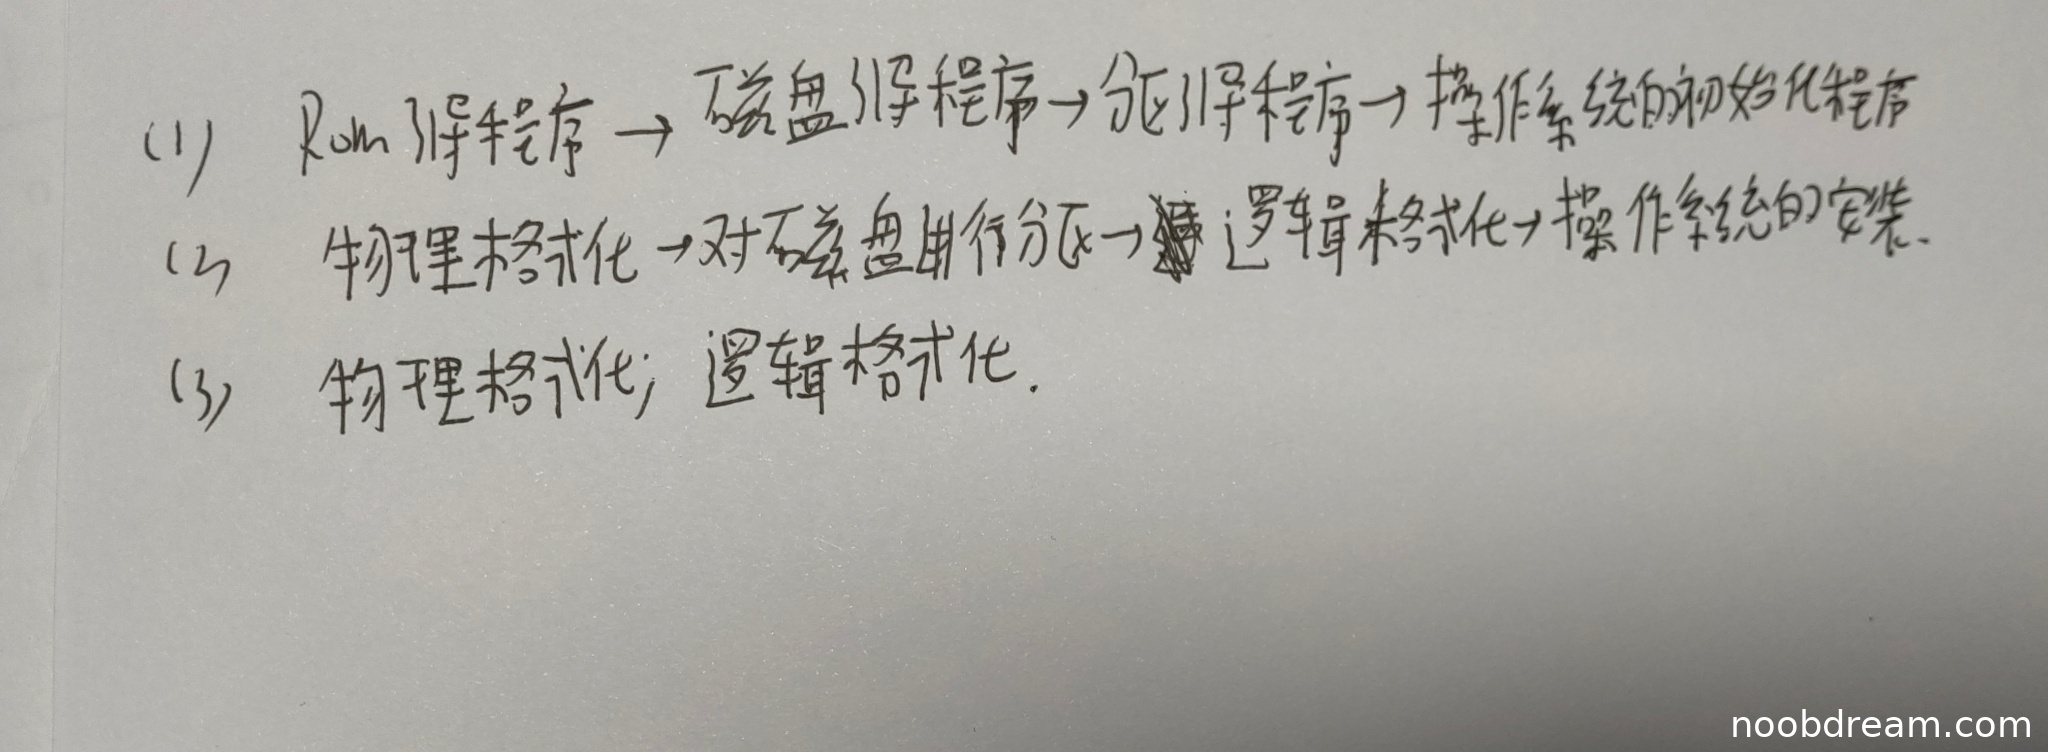 (1) Rom引导程序→磁盘引导程序→分区引导程序→操作系统的初始化程序
(2) 物理格式化→对磁盘进行分区→逻辑格式化→操作系统的安装.
(3) 物理格式化; 逻辑格式化.
noobdream.com